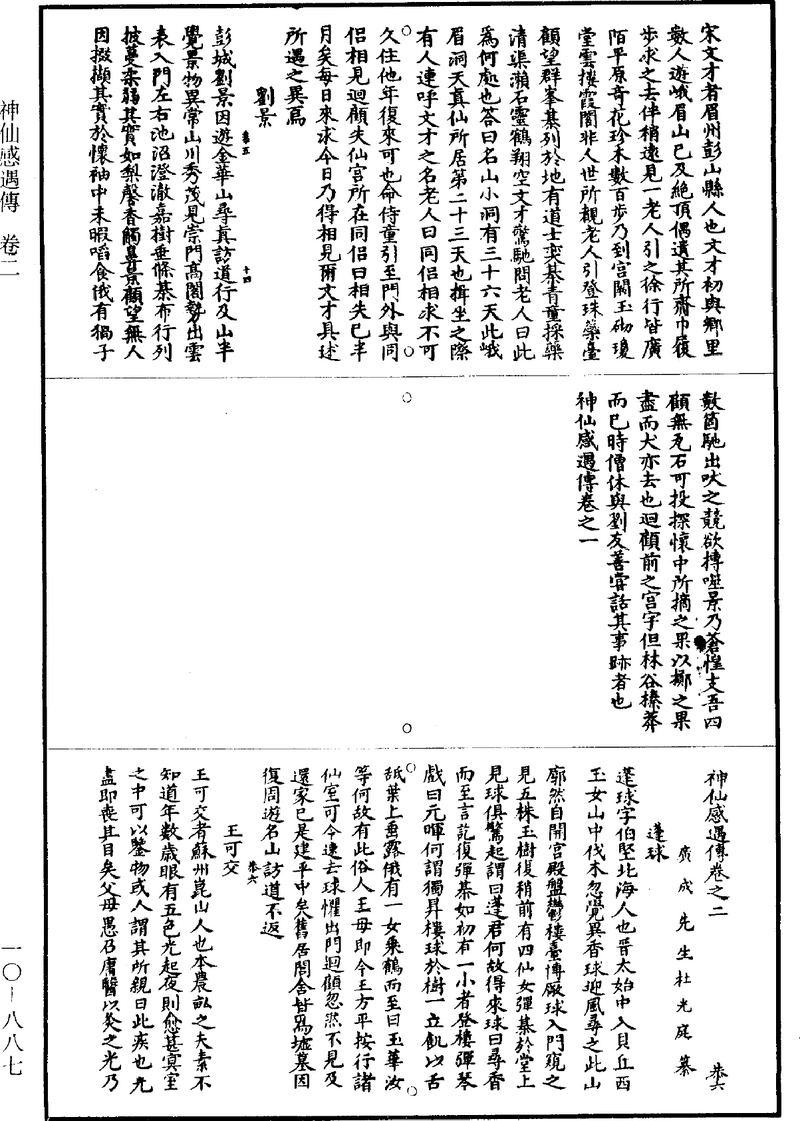 宋文才者眉州彭山縣人也文才初與鄉里
數人遊峨眉山已及絕頂偶遺其所齋巾履
步求之去伴稍遠見一老人引之徐行皆廣
陌平原奇花珍木數百步乃到宮闕玉砌瓊
堂雲樓霞閣非人世所覩老人引登珠藥臺
顧望群峯棊列於地有道士奕棊青童採藥
清渠瀨石靈鶴翔空文才驚駭問老人曰此
為何處也荅曰名山小洞有三十六天此峨
眉洞天真仙所居第二十三天也揖坐之際
有人連呼文才之名老人曰同侶相求不可
久住他年復來可也命侍童引至門外與同
侶相見迴顧失仙宮所在同侶曰相失已半
月矣每日來求今日乃得相見爾文才具述
所遇之異焉
劉景
彭城劉景因遊金華山尋真訪道行及山半
恭五
十四
覺景物異常山川秀茂見崇門高閣勢出雲
表入門左右池沼澄澈嘉樹垂條棊布行列
披蔓柔弱其實如梨馨香觸鼻景顧望無人
因掇擷其實於懷袖中未暇啗食俄有猧子
數箇馳出吠之競欲搏噬景乃蒼惶支吾四
顧無瓦石可投探懷中所摘之果以擲之果
盡而犬亦去也迴顧前之宮宇但林谷榛莽
而已時僧休與劉友善嘗話其事跡者也
神仙感遇傳卷之一
神仙感遇傳卷之二
恭六
廣成先生杜光庭纂
蓬球
蓬球字伯堅北海人也晉太始中入貝丘西
玉女山中伐木忽覺異香球迎風尋之此山
廓然自開宮殿盤鬱樓臺博敞球入門窺之
見五株玉樹復稍前有四仙女彈棊於堂上
見球俱驚起謂曰蓬君何故得來球曰尋香
而至言訖復彈棊如初有一小者登樓彈琴
戲曰元暉何謂獨昇樓球於樹下立飢以舌
舐葉上垂露俄有一女乘鶴而至曰玉華汝
等何故有此俗人王母即令王方平按行諸
仙室可令速去球懼出門迴顧忽然不見及
還家已是建平中矣舊居閭舍皆為墟墓因
復周遊名山訪道不返
恭六
王可交
王可交者蘇州崑山人也本農畝之夫素不
知道年數歲眼有五色光起夜則愈甚冥室
之中可以鑒物或人謂其所親曰此疾也光
盡即喪其目矣父母愚召庸醫以灸之光乃
神仙感遇傳　卷二
一〇―八八七